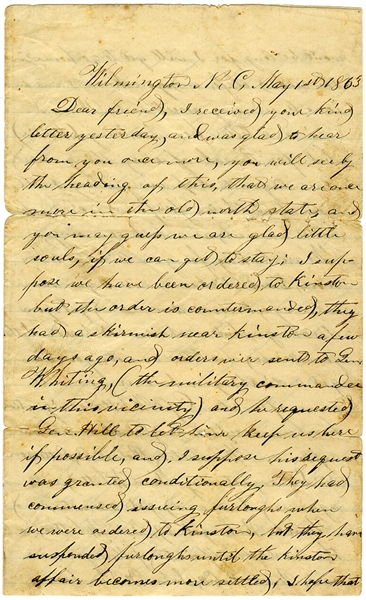 Wilmington N. C. May 1st 1863
Dear friend, I received your kind
letter yesterday, and was glad to hear
from you once more, you will see by
the heading of this, that we are once
more in the old north state, and
you may guess we are glad little
souls, if we can get to stay; I sup-
pose we have been ordered to Kinston
but the order is countermanded, they
had a skirmish near Kinston a few
days ago, and orders wer sent to Gen
Whiting, (the military commander
in this vicinity) and he requested
Gen. Hill to let him keep us here
if possible, and, I suppose his request
was granted conditionally, They had
commensed issueing furloughs when
we were ordered to Kinston, but they have
suspended furloughs until the kinston
affair becomes more settled; I hope that